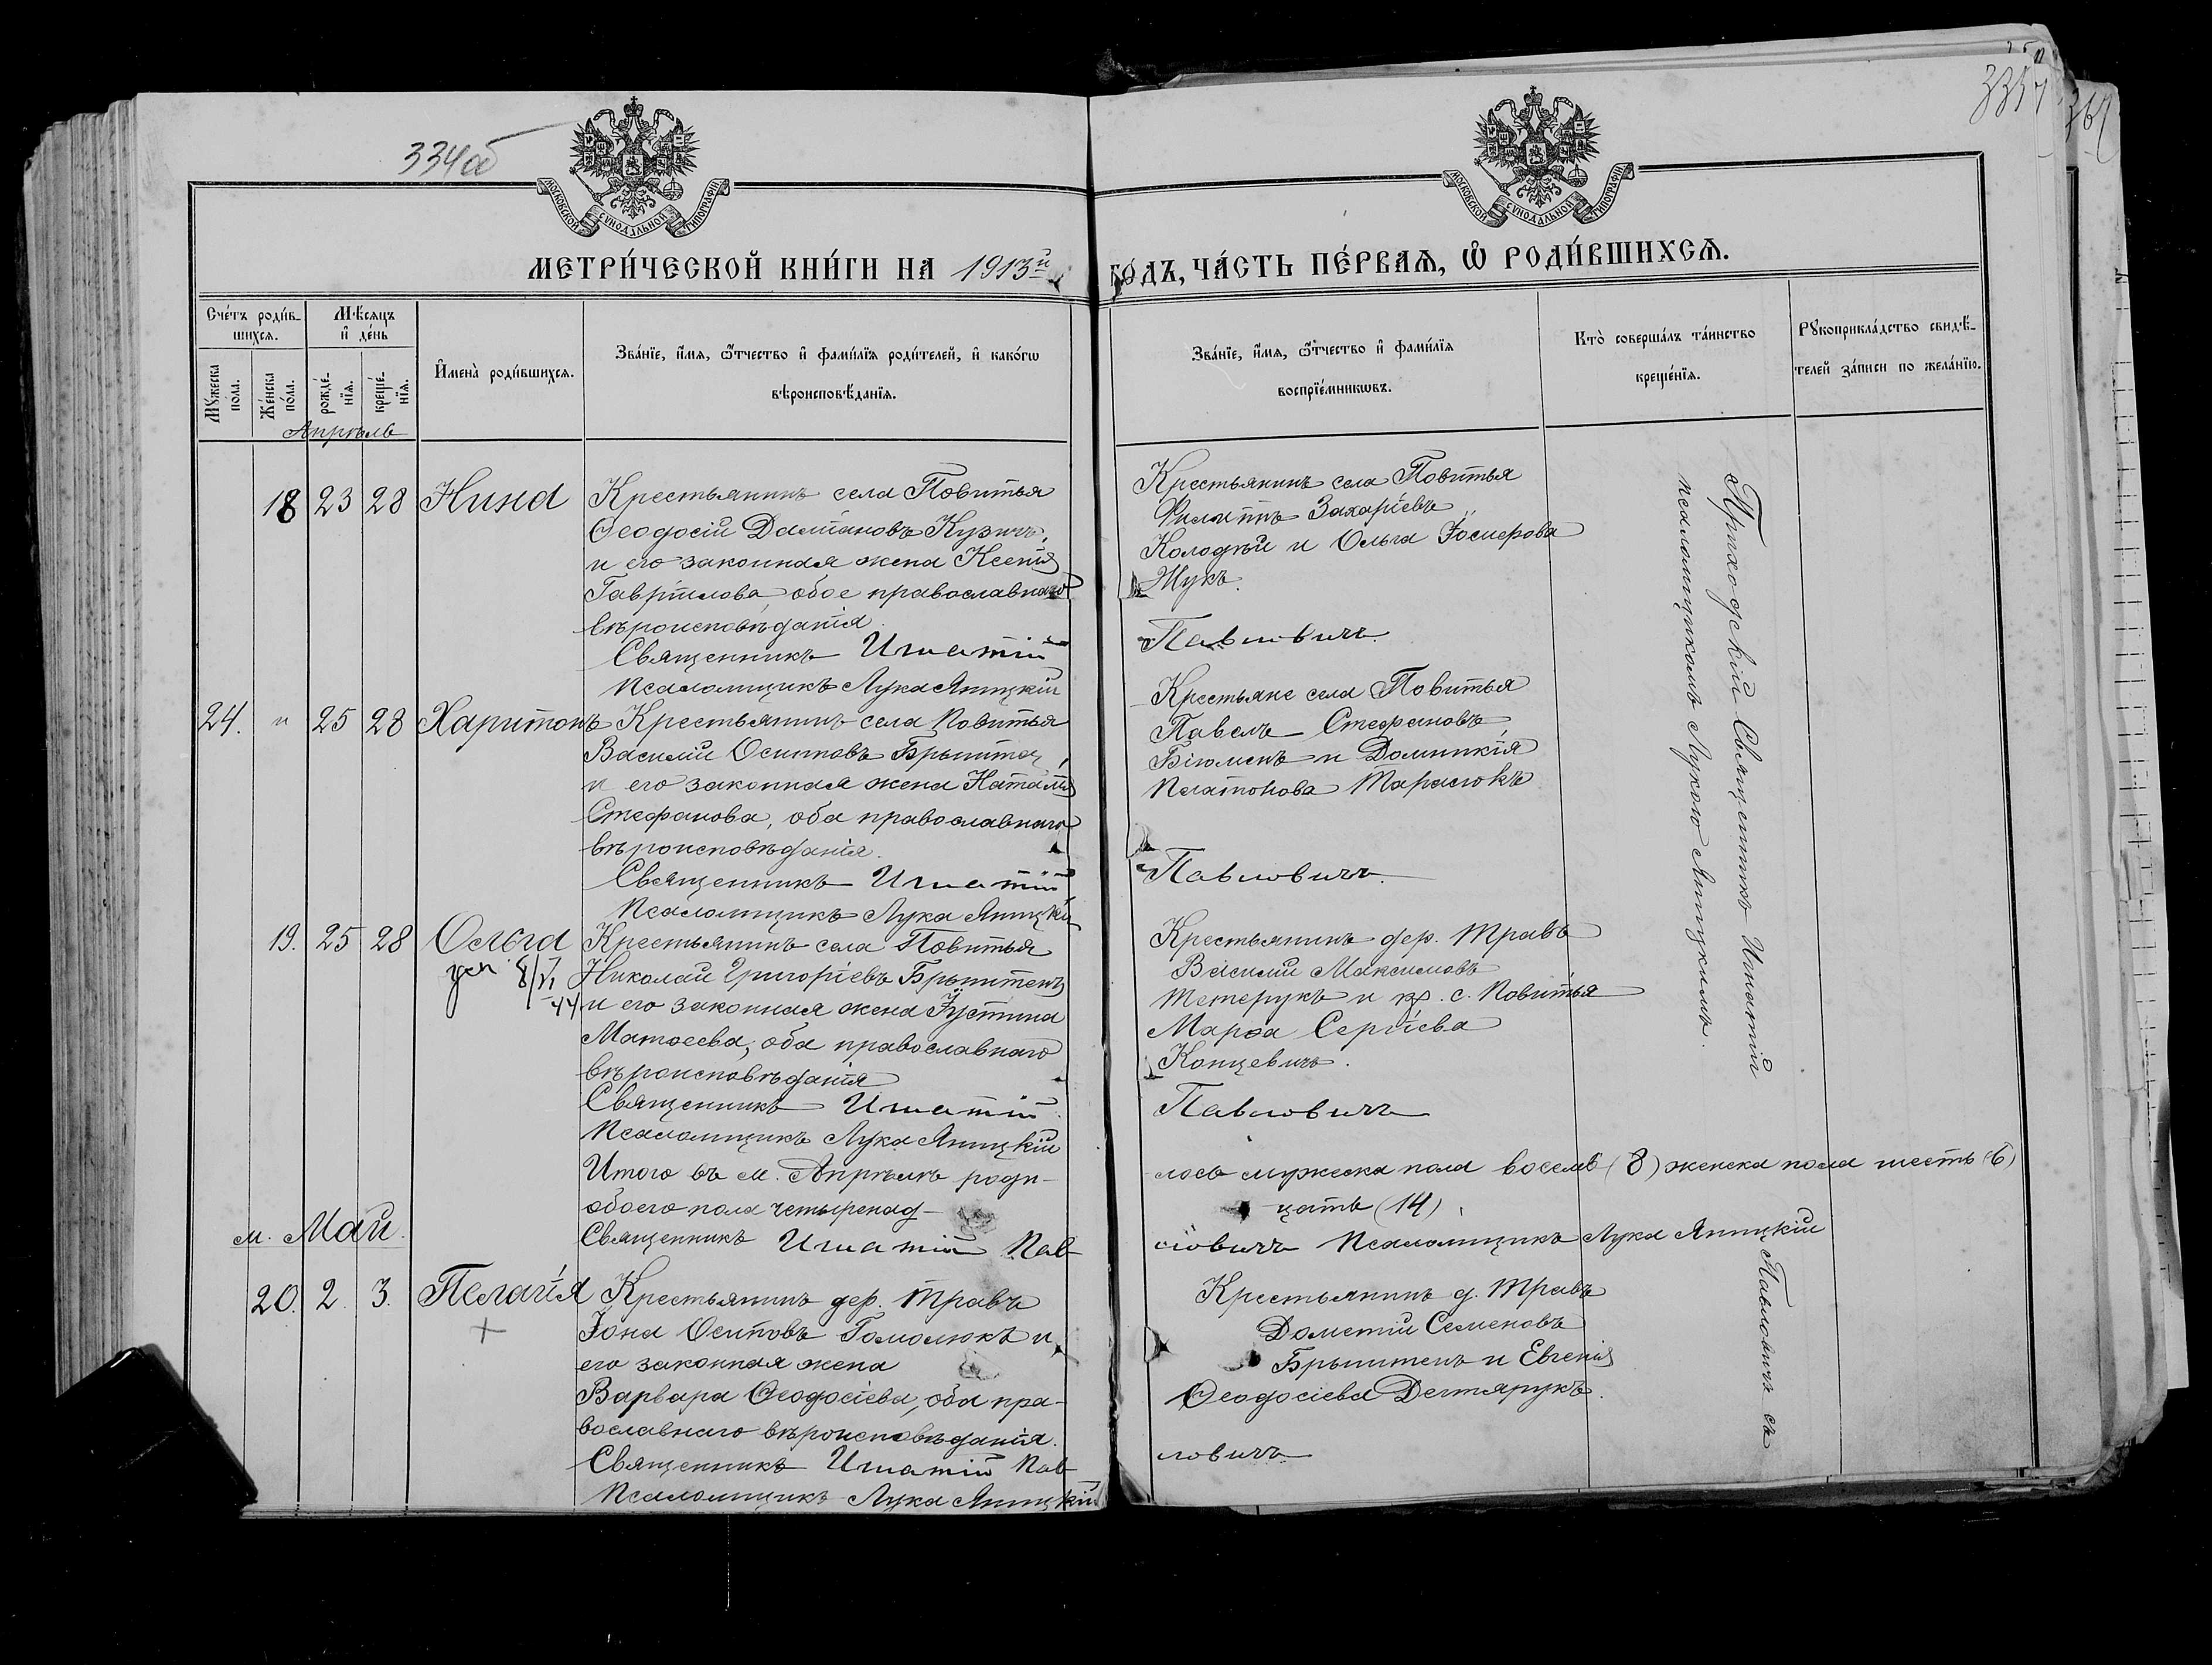 334об
335
МОСКОВСКОЙ СѴНОДАЛЬНОЙ ТИПОГРАФІИ
МОСКОВСКОЙ СѴНОДАЛЬНОЙ ТИПОГРАФІИ
МЕТРИ́ЧЕСКОЙ КНИ́ГИ НА 1913й
ГО́ДЪ, ЧА́СТЬ ПЕ́РВАѦ, Ѿ РОДИ́ВШИХСѦ.
Сче́тъ роди́в-
шихсѧ.
Мꙋжеска пола.
Же́нска по́ла.
Мѣ́сѧцъ
и҆ де́нь
рожде́-
нїѧ.
креще́-
нїѧ.
И҆мена̀ роди́вшихсѧ.
Зва́нїе, и҆́мѧ, ѻ҆́тчество и҆ фами́лїѧ роди́телей, и҆ како́гѡ
вѣроисповѣ́данїѧ.
Зва́нїе, и҆́мѧ, ѻ҆́тчество и҆ фами́лїѧ
воспрїе́мникѡвъ.
Кто̀ соверша́лъ та́инство
креще́нїѧ.
Рꙋкоприкла́дство свидѣ́-
телей за́писи по жела́нїю.
Апрѣль
18 23 28 Нина
Крестьянинъ села Повитья
Ѳеодосій Даміановъ Кузичъ,
и его законная жена Ксенія
Гавріилова, обое православнаго
вѣроисповѣданія.
Священникъ Игнатій
Псаломщикъ Лука Яницкій
Крестьянинъ села Повитья
Филиппъ Захаріевъ
Колодѣй и Ольга Іосифова
Жукъ.
Павловичъ.
24. " 25 28 Харитонъ
Крестьянинъ села Повитья
Василій Осиповъ Брынтен,
и его законная жена Наталія
Стефанова, оба православнаго
вѣроисповѣданія.
Священникъ Игнатій
Псаломщикъ Лука Яницкій
Крестьяне села Повитья
Павелъ Стефановъ
и Домникія
Платонова Тарасюкъ
Павловичъ.
19. 25 28 Ольга
8/VI
44
Крестьянинъ села Повитья
Николай Григоріевъ Брынтенъ
и его законная жена Іустина
Матѳеева, оба православнаго
вѣроисповѣданія
Священникъ Игнатій
Псаломщикъ Лука Яницкій
Крестьянинъ дер. Травъ
Василій Максимовъ
Тетерукъ и кр. с. Повитья
Марѳа Сергіева
Концевичъ.
Павловичъ
Итого въ м. Апрѣлѣ роди-
лось мужеска пола восемь (8) женска пола шесть (6)
обоего пола четыренад-
цать (14)
Священникъ Игнатій Пав
ловичъ Псаломщикъ Лука Яницкій
м. Май.
20. 2. 3. Пелагія
+
Крестьянинъ дер. Травъ
Іона Осиповъ Гомолюкъ и
его законная жена
Варвара Ѳеодосіева, оба пра-
вославнаго вѣроисповѣданія.
Священникъ Игнатій Пав
Псаломщикъ Лука Яницкій
Крестьянинъ д. Травъ
Дометій Семеновъ
Брынтенъ и Евгенія
Ѳеодосіева Дегтярукъ.
ловичъ
Приходскій Священникъ Игнатій Павловичъ съ
псаломщикомъ Лукою Яницкимъ.